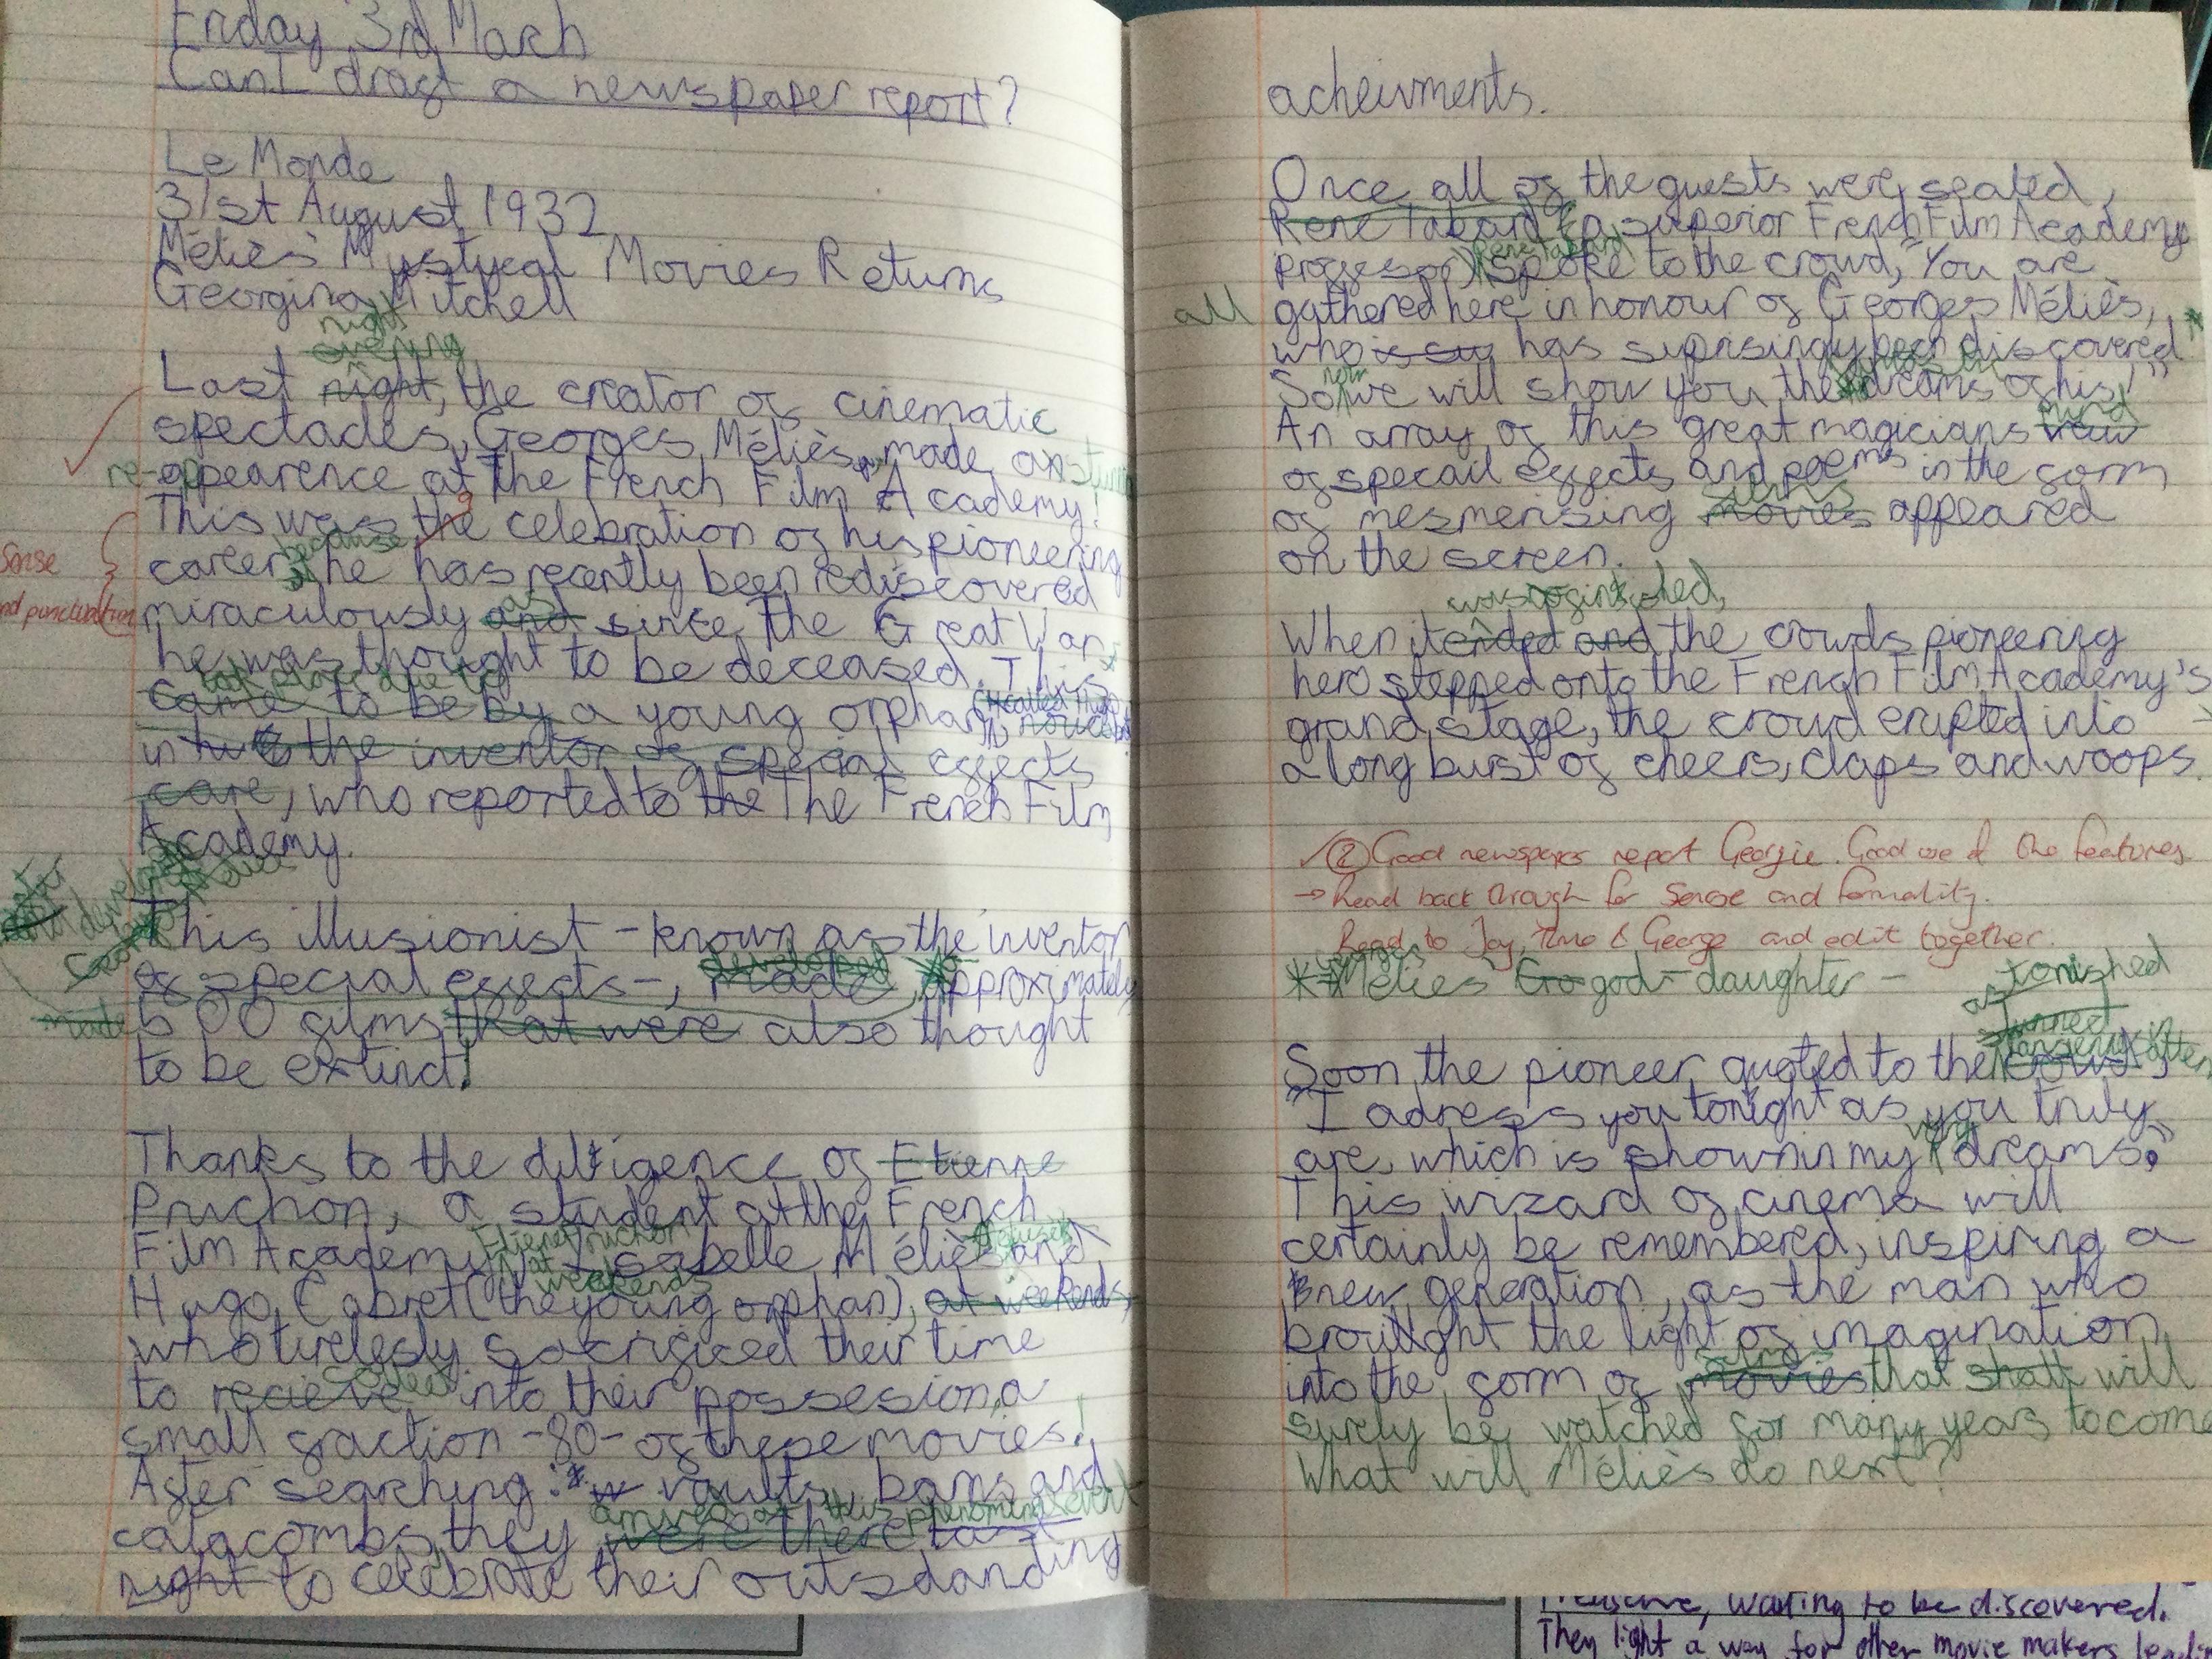 Friday 3rd March
Can I draft a newspaper report?
Le Monde
31st August 1932
Méliès Mystycal Movies Returns
Georgina Mitchell
night
evening
Last night, the creator of cinematic
spectacles, Georges Méliès, made an
re-appearence at the French Film Academy!
This was the celebration of his pioneering
because
career, he has recently been rediscovered
Sense
and punctuation
as
miraculously and since The Great War,
he was thought to be deceased. This
came to be by a young orphan
in the inventor of special effects
care, who reported to the The French Film
Academy.
This illusionist - known as the inventor
developed
of special effects-, made approximately
made 500 films that were also thought
to be extinct!
Thanks to the diligence of Etienne
Pruchon, a student at the French
Etienne Pruchon
Film Academy, Isabelle Méliès and
at weekends
Hugo Cabret (the young orphan), at weekends,
who tirelessly sacrificed their time
collect
to recieve into their possesion a
small fraction -80- of these movies!
After searching: vaults, barns and
arrived at this phenominal event
catacombs, they were there last
night to celebrate their outsdanding
acheivments.
Once all of the guests were seated,
Rene Tabard (a superior French Film Academy
Rene Tabard
professor) spoke to the crowd, "You are
all gathered here in honour of Georges Méliès,
who is suy has suprisingly been discovered
now
So we will show you the dreams of his!"
mind
An array of this great magicians
of specail effects and poems in the form
films
of mesmerising movies appeared
on the screen.
When it ended and the crowds pioneering
hero stepped onto the French Film Academy's
grand stage, the crowd erupted into
a long burst of cheers, claps and woops.
✓② Good newspaper report Georgie. Good use of the features
→ Read back through for Sense and formality.
Read to Joy, Timo & George and edit together.
** Méliès' Go god-daughter -
astonished
Soon the pioneer quoted to the crowd,
"I adress you tonight as you truly
very
are, which is shown in my dreams."
This wizard of cinema will
certainly be remembered, inspiring a
new generation, as the man who
brought the light of imagination
films
into the form of movies that shall will
surely be watched for many years to come
What will Méliès do next?
waiting to be discovered.
They light a way for other movie makers